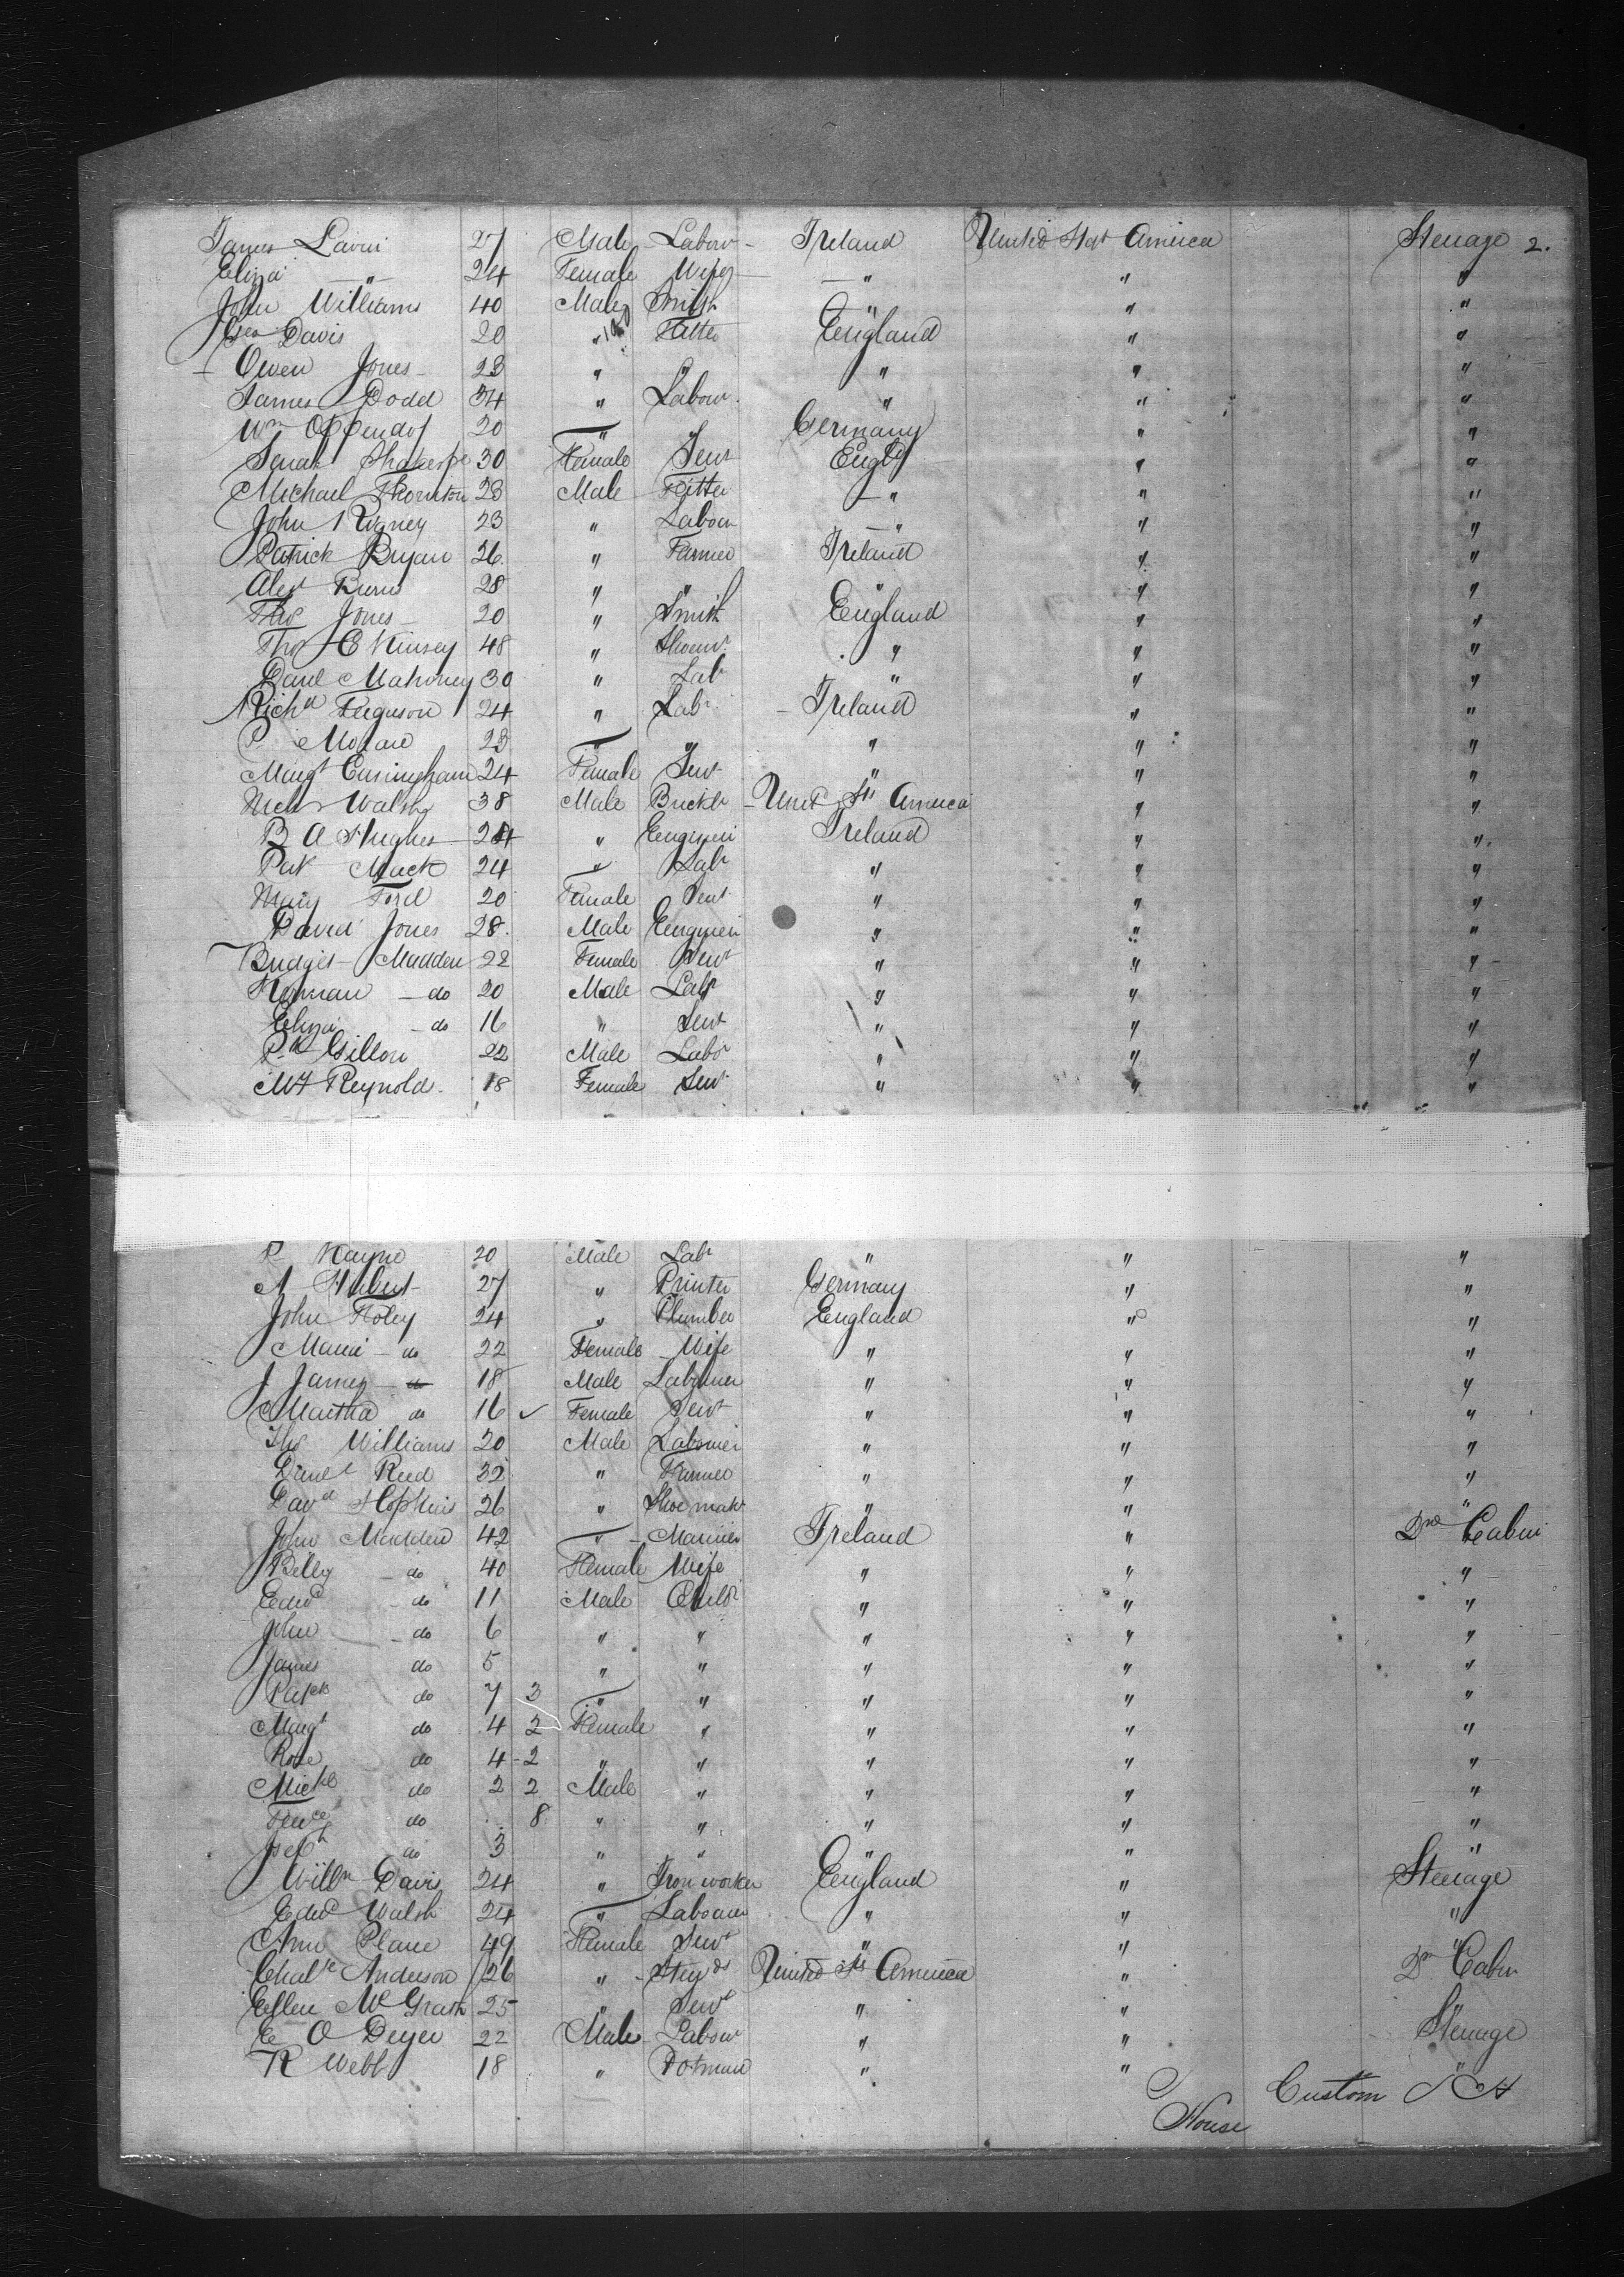 James Lavin 27 Male Labour Ireland United Stat America Steerage 2.
Eliza " 24 Female Wife " " "
John Williams 40 Male Smith " " "
Geo Davis 20 " Fitter England " "
Owen Jones 23 " " " " "
James Dodd 34 " Labour " " "
Wm 20 " " Germany " "
Sarah 30 Female Servt Engld " "
Michael Thornton 23 Male Fitter " " "
John Rigney 23 " Labour " " "
Patrick Bryan 26 " Farmer Ireland " "
Alexr Burns 28 " " " " "
Thos Jones 20 " Smith England " "
Thos E Kinsey 48 " " " "
Danl Mahoney 30 " Labr " " "
Richd Ferguson 24 " Labr Ireland " "
P 23 " " " " "
Margt Cuningham 24 Female Servt " " "
Walsh 38 Male Brickr Unit Sts America " "
B A Hughes 24 " Engineer Ireland " "
Pat Mack 24 " Labr " " "
Mary Ford 20 Female Servt " " "
David Jones 28 Male Engineer " " "
Bridget Madden 22 Female Servt " " "
do 20 Male Labr " " "
Eliza do 16 " Servt " " "
Gillon 22 Male Labr " " "
Mt Reynold 18 Female Servt " " "
P Kayne 20 Male Labr " " "
A Hubert 27 " Printer Germany " "
John Foley 24 " Plumber England " "
Maria do 22 Female Wife " " "
J James do 18 Male Labourer " " "
Martha do 16 ✓ Female Servt " " "
Thos Williams 20 Male Labourer " " "
Reed 32 " Farmer " " "
Davd Hopkins 26 " Shoe makr " " "
John Madden 42 " Ireland " 2nd Cabin
do 40 Female Wife " " "
Edwd do 11 Male Child " " "
John do 6 " " " " "
James do 5 " " " " "
Patk do 7 3 " " " " "
Margt do 4 2 Female " " " "
Rose do 4 2 " " " " "
Michl do 2 2 Male " " " "
do 8 " " " " "
do 3 " " " " "
Willm Davis 24 " Iron worker England " Steerage
Edwd Walsh 24 " Labourer " " "
Ann Plane 49 Female Servt " " "
Anderson 26 " Stewds United Sts America " 2n Cabin
Ellen McGrath 25 " Servt " " "
E O Dwyer 22 Male Labour " " Steerage
R Webb 18 " " " "
Custom
House